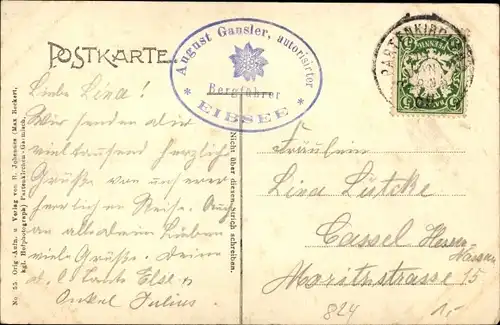 POSTKARTE.
August Gansler, autorisirter
Bergführer
* EIBSEE *
PARTENKIRCHEN
Liebe Lina!
Wir senden dir
viel tausend herzlich
Grüße von uns erer
herrlichen Reise. Auch
an all deine Lieben
viele Grüße. Deine
Tante Else u
Onkel Julius.
Fräulein
Lina Lütcke
Cassel Hessen
Nassau
Moritzstrasse 15
824
1,-
Nicht über diesen Strich schreiben.
No. 55 Orig.-Aufn. u. Verlag von B. Johannes (Max Beckert,
kgl. Hofphotograph) Partenkirchen-Garmisch.